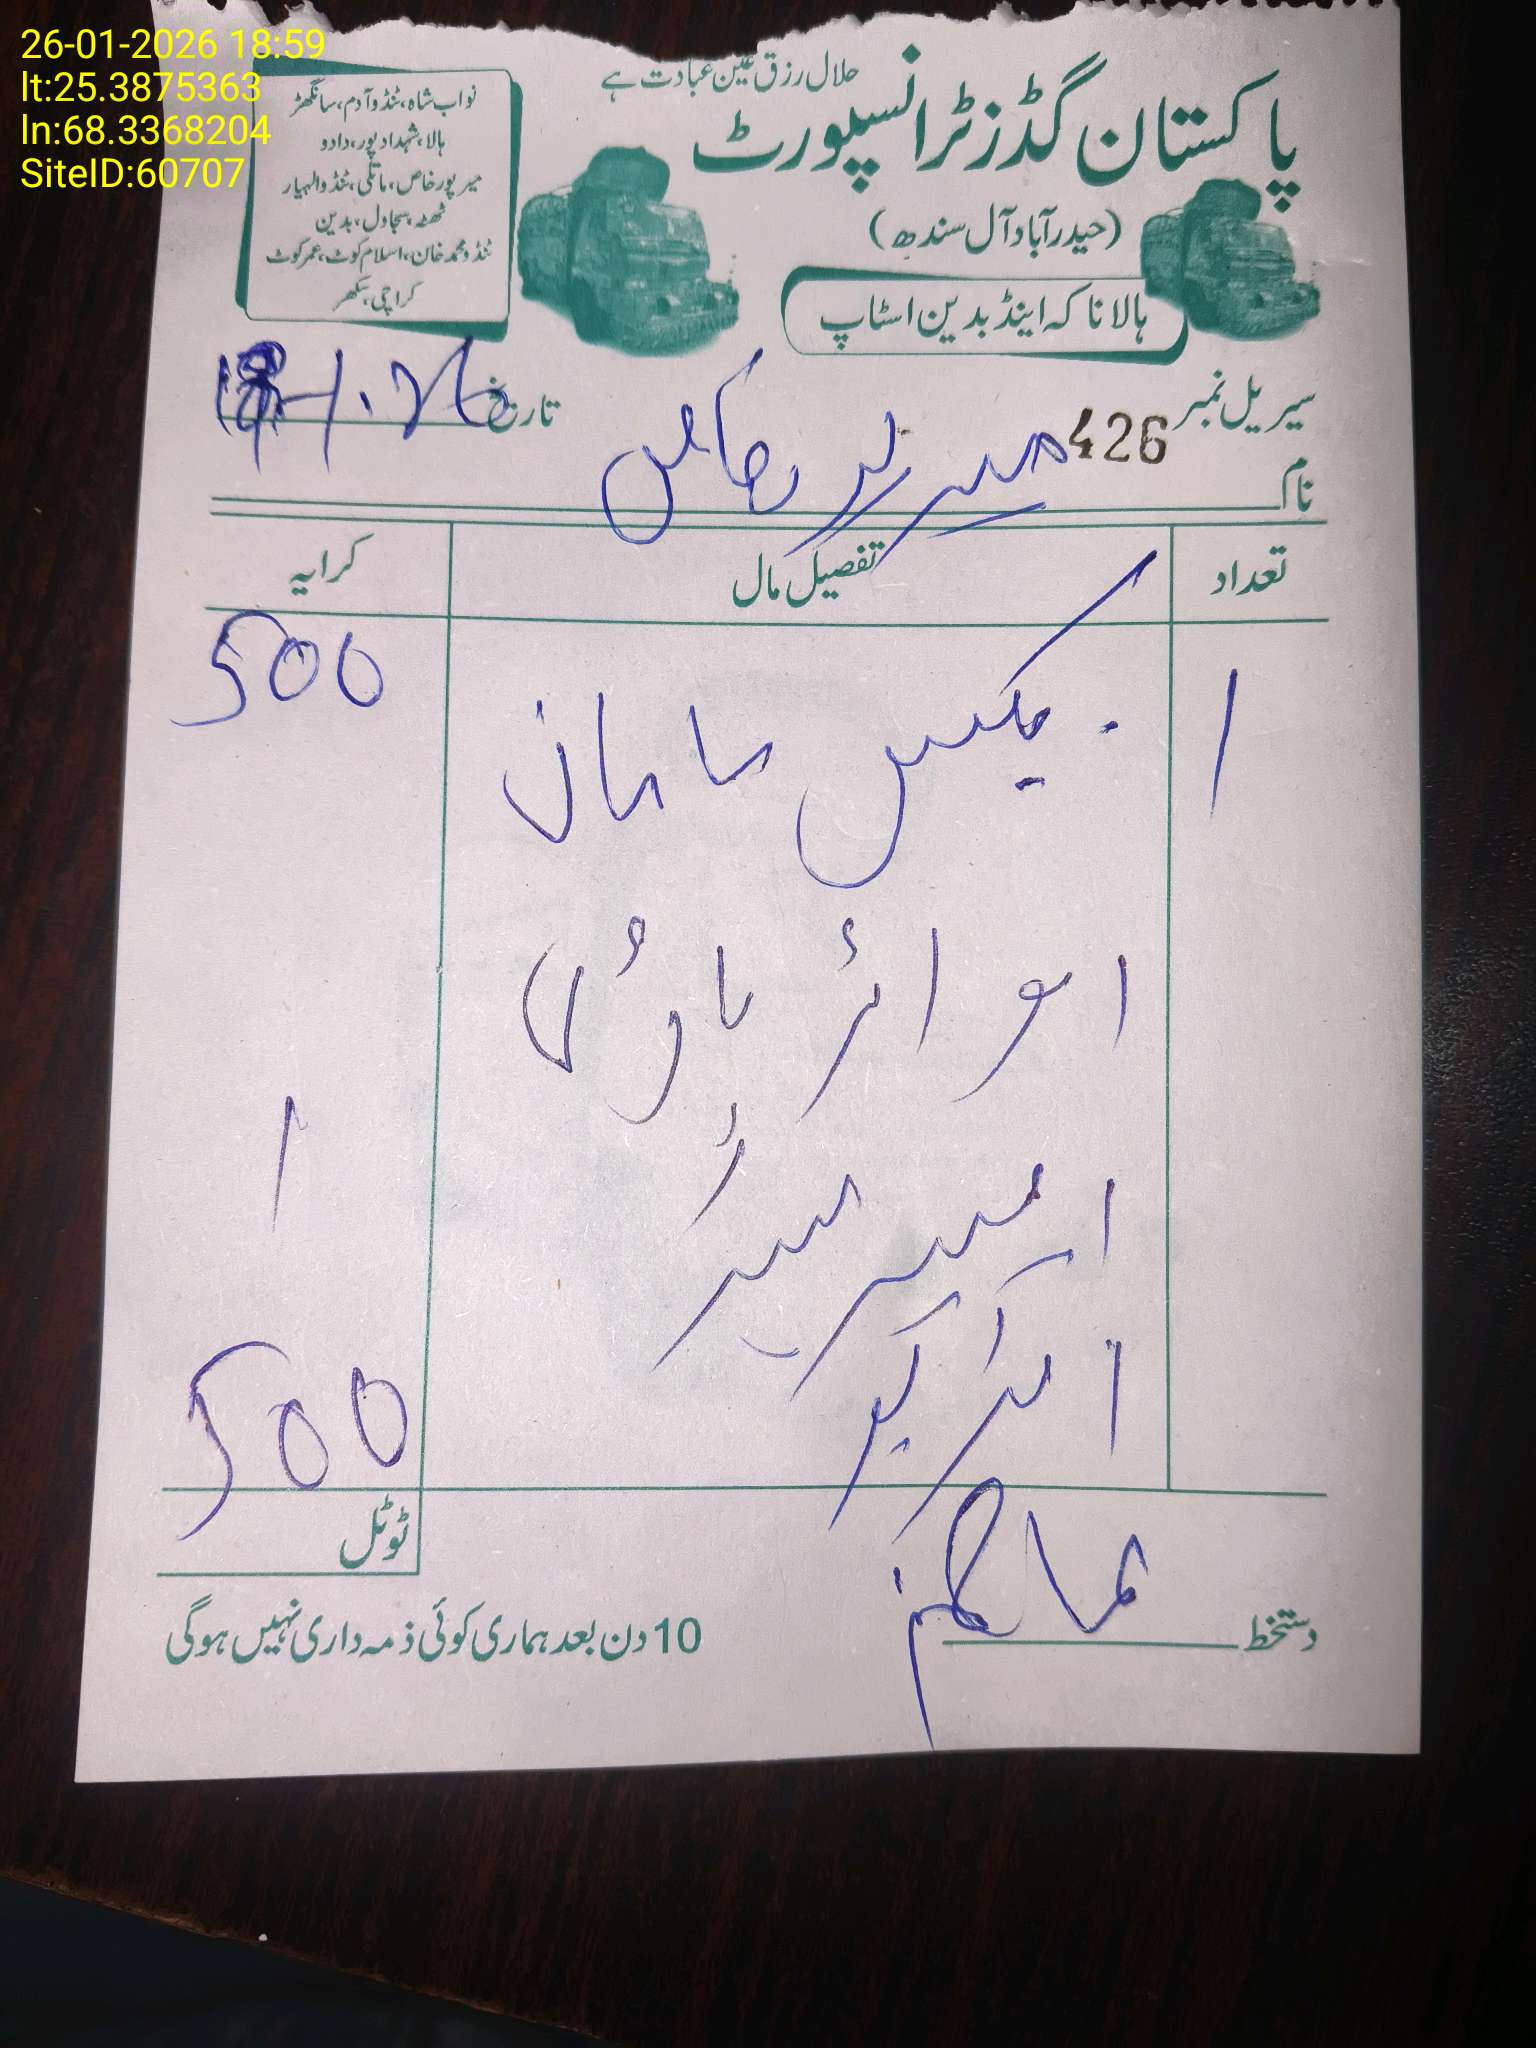 26-01-2026 18:59
lt:25.3875363
ln:68.3368204
SiteID:60707
حلال رزق عین عبادت ہے
پاکستان گڈز ٹرانسپورٹ
(حیدرآباد آل سندھ)
ہالا ناکہ اینڈ بدین اسٹاپ
نواب شاہ، ٹنڈو آدم، سانگھڑ
ہالا، شہداد پور، دادو
میرپور خاص، ماتلی، ٹنڈوالہیار
ٹھٹھہ، سجاول، بدین
ٹنڈو محمد خان، اسلام کوٹ، عمرکوٹ
کراچی، سکھر
سیریل نمبر 426 تاریخ
نام میرپور خاص
تعداد تفصیل مال کرایہ
1 مکس سامان 500
500
ٹوٹل
دستخط
10 دن بعد ہماری کوئی ذمہ داری نہیں ہوگی